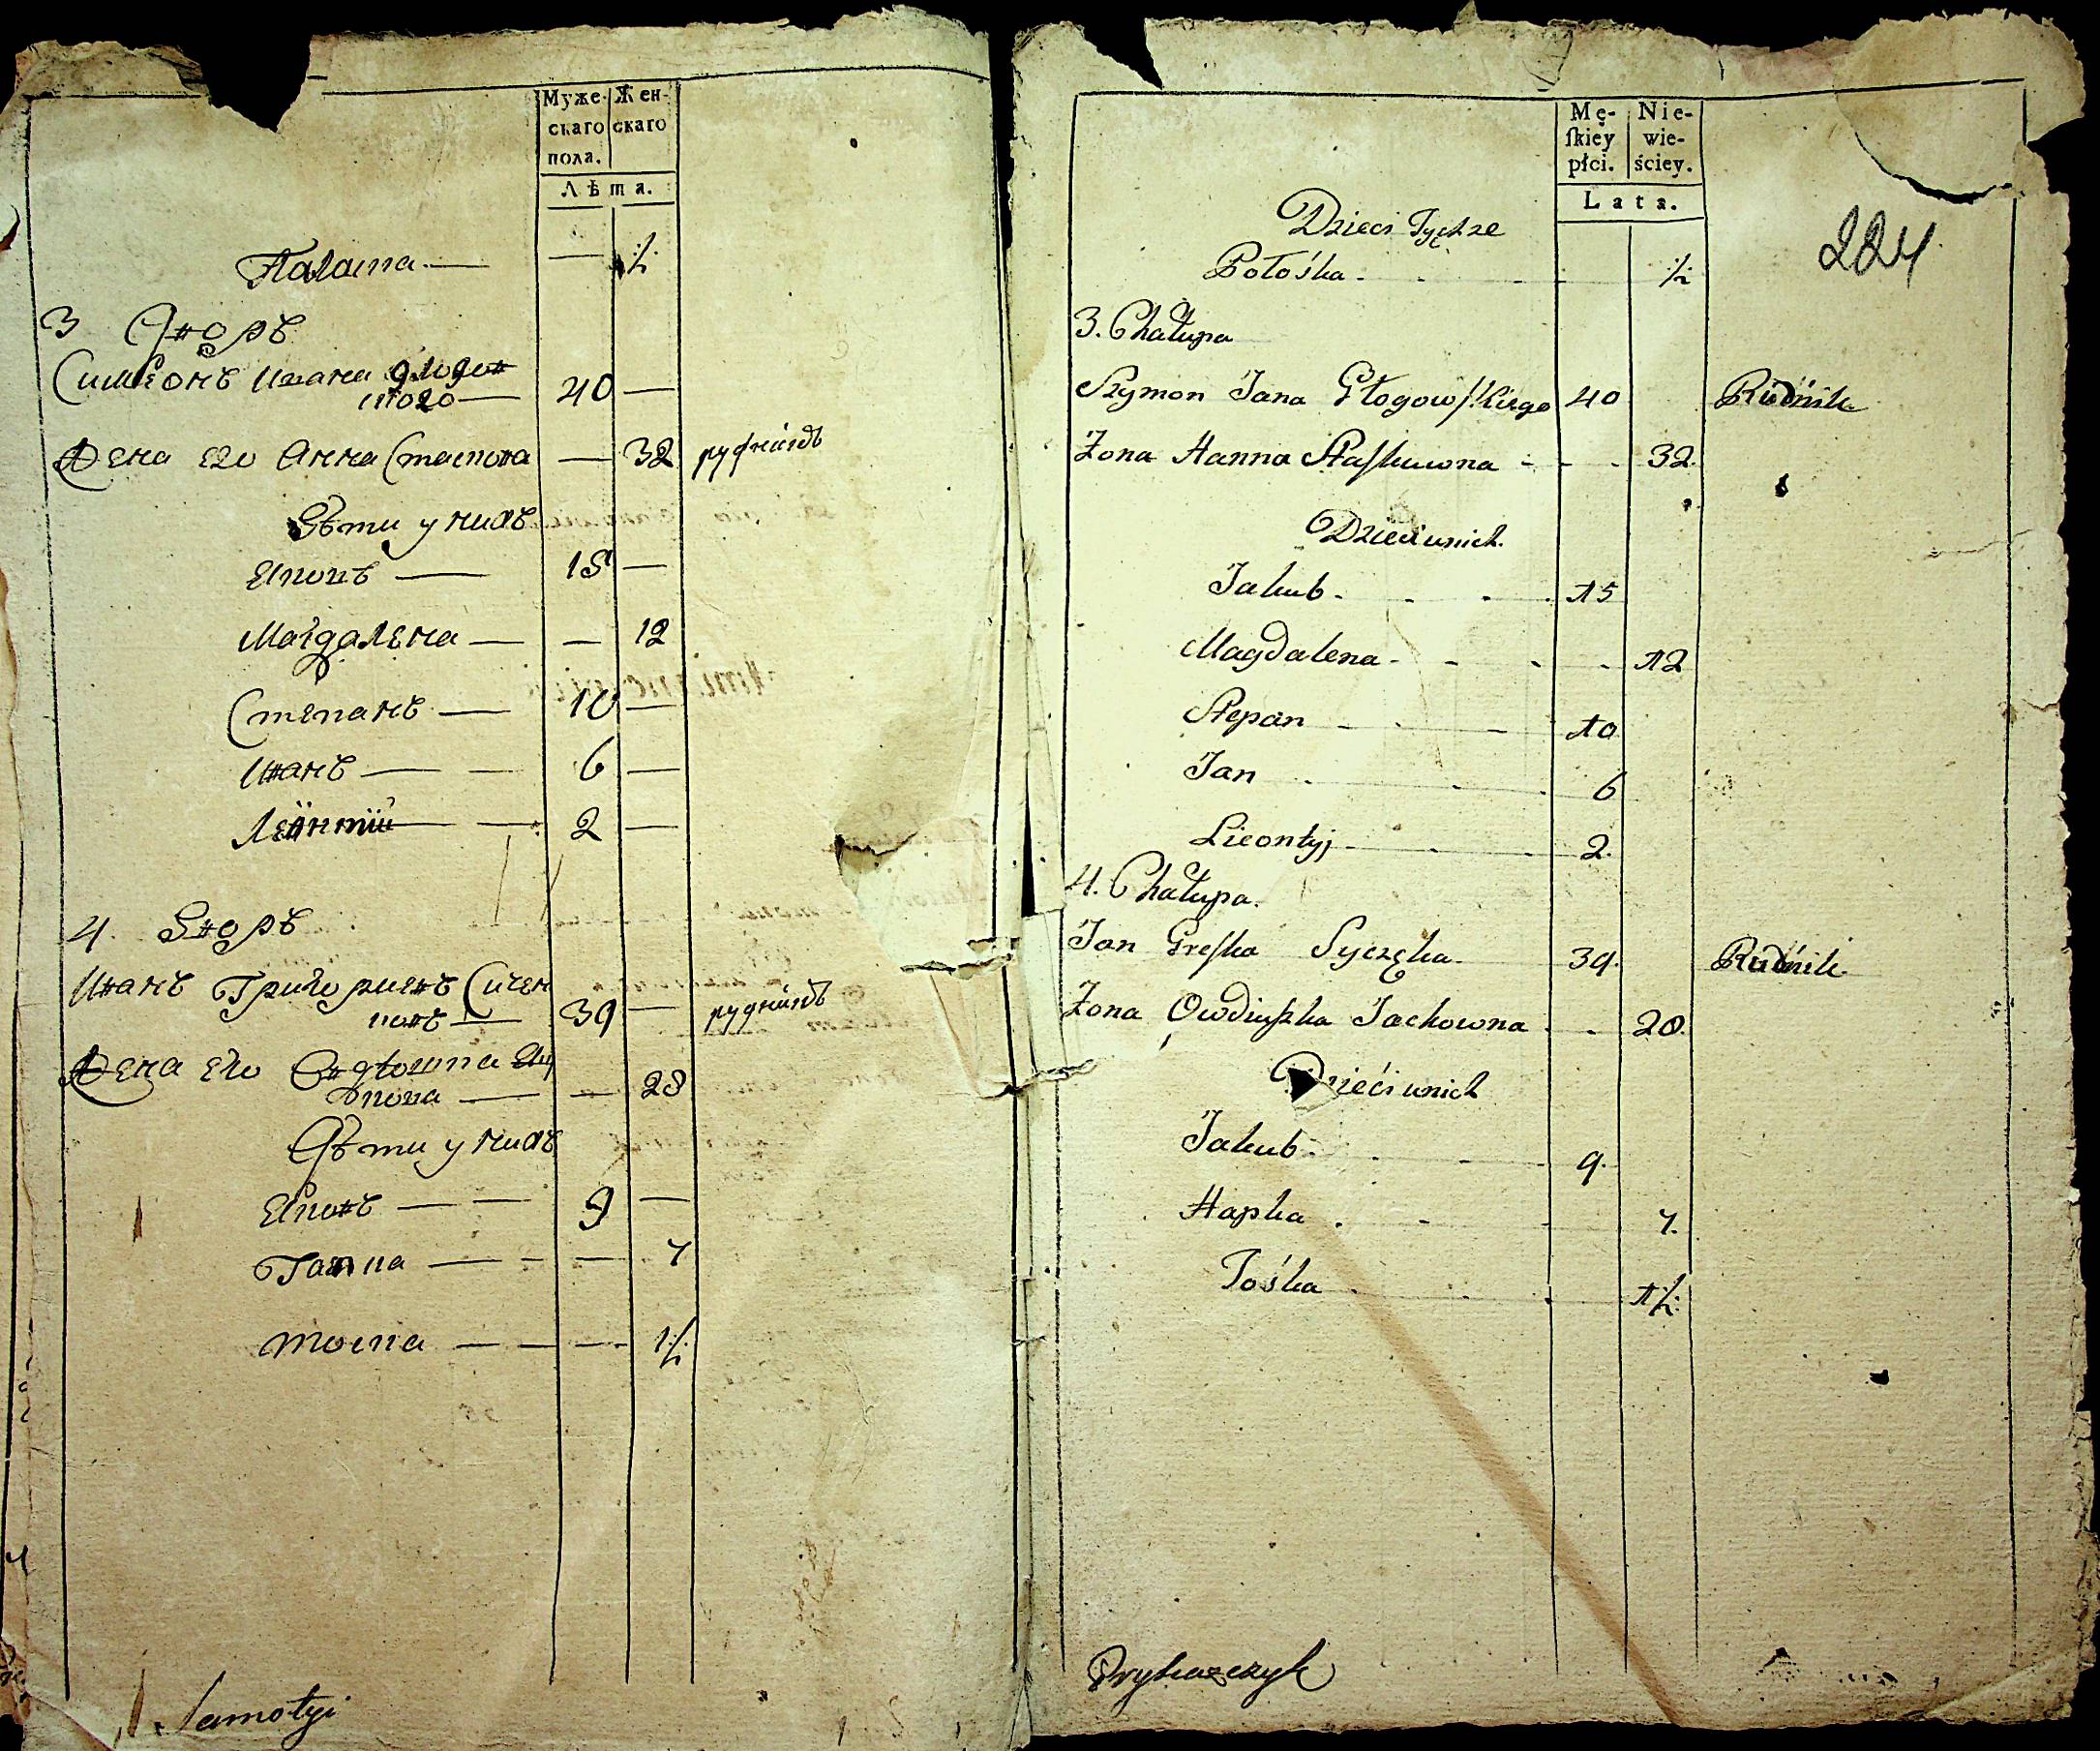 Муже- Жен-
скаго скаго
пола.
Лѣта.
Палаша — — ½
3 Дворъ
Симеонъ Ивана Глогов
ского — 40 —
Жена его Анна Стаскова — 32 рудникъ
Дѣти у нихъ
Яковъ — 15 —
Магдалена — — 12
Степанъ — 10 —
Иванъ — 6 —
Леонтій — 2 —
4. Дворъ
Иванъ Григориевъ Сичен
ковъ — 39 — рудникъ
Жена его
— — 28
Дѣти у нихъ
Яковъ — 9 —
Гапка — — 7
Тоска — — 1½
Samotyi
Mę- Nie-
ſkiey wie-
płci. ściey.
Lata.
224
Dzieci Tychże
Połośka ½
3. Chałupa
Szymon Jana Głogowſkiego 40 Rudnik
Żona Hanna Staſkuwna 32.
Dzieci unich.
Jakub 15
Magdalena 12
Stepan 10
Jan 6
Lieontyj 2.
4. Chałupa.
Jan Greſka Syczęka 39. Rudnik
Żona Owdiuſzka Jackowna 28.
Dzieći unich
Jakub 9.
Hapka 7.
Tośka 1½
Prykazczyk